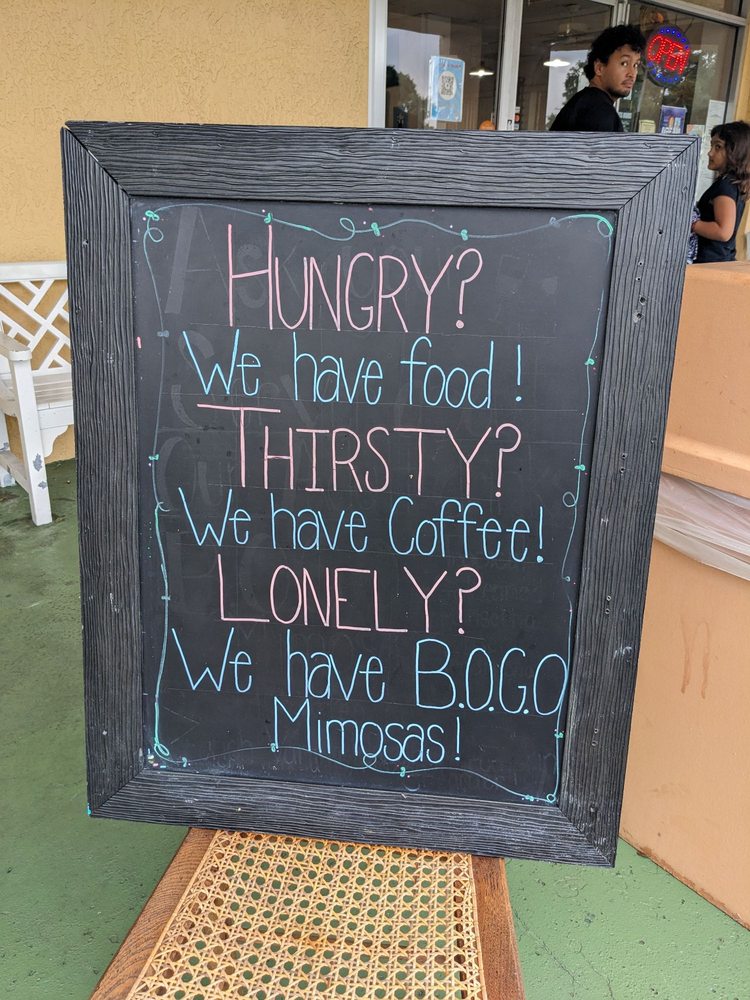 OPEN
HUNGRY?
We have food!
THIRSTY?
We have Coffee!
LONELY?
We have B.O.G.O
Mimosas!